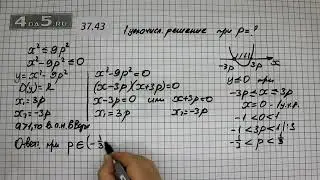 4DA5.RU
37.43
1 целочисл. решение при p=?
x² ≤ 9p²
x² - 9p² ≤ 0
y = x² - 9p²
D(y) = R
x₁ = 3p
x₂ = -3p
a>1, то в.п.н. вверх
x² - 9p² = 0
(x-3p)(x+3p) = 0
x-3p = 0 или x+3p = 0
x₁ = 3p x₂ = -3p
-3p 3p x
y ≤ 0 при
-3p ≤ x ≤ 3p
x = 0 - 1 ц.р.
-1 < 0 < 1
-1 < 3p < 1 |:3
-1/3 < p < 1/3
Ответ: при p ∈ (-1/3